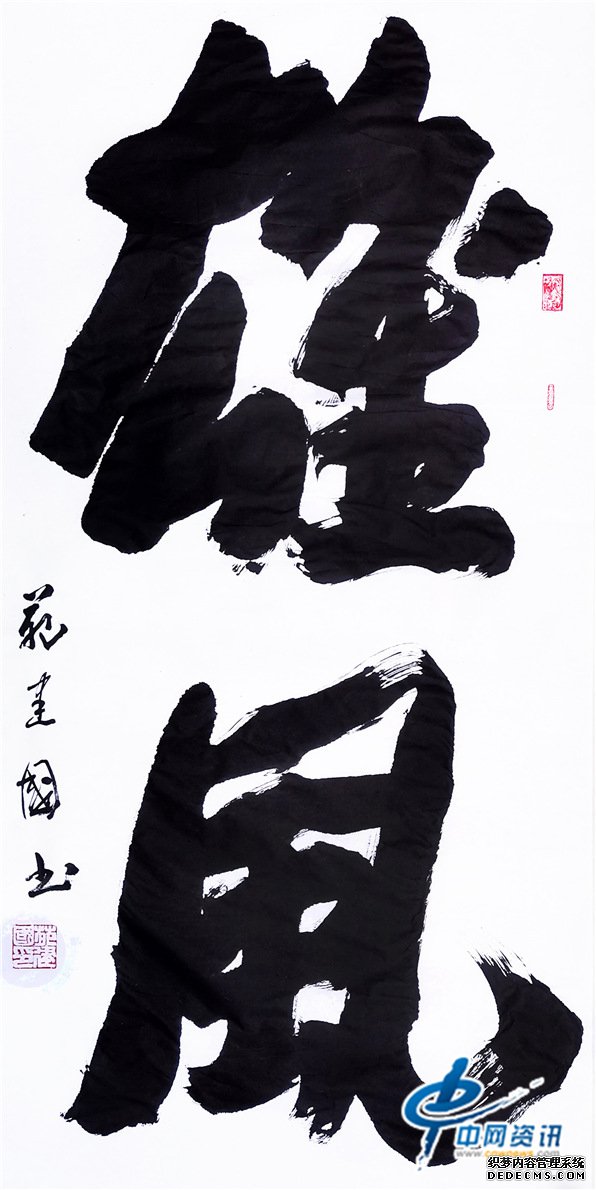 雄風
建國书
中网资讯
织梦内容管理系统
DEDECMS.COM